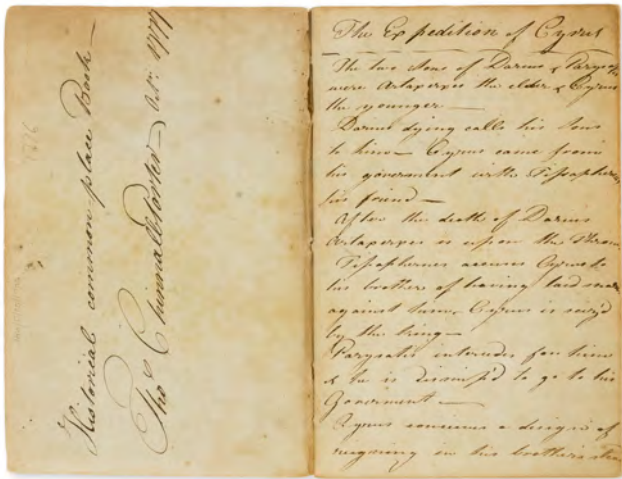 Historical common-place Book—
Tho.s Chinnall Porter— Oct.r 1777
The Expedition of Cyrus
The two Sons of Darius & Parysatis
were Artaxerxes the elder & Cyrus
the younger.—
Darius dying calls his Sons
to him— Cyrus came from
his government with Tissaphernes
his friend—
After the death of Darius
Artaxerxes is upon the Throne
Tissaphernes accuses Cyrus to
his brother of having laid
against him, Cyrus is seiz'd
by the king—
Parysatis intercedes for him
& he is dismiss'd to go to his
Goverment—
Cyrus conceives a design of
reigning in his brothers